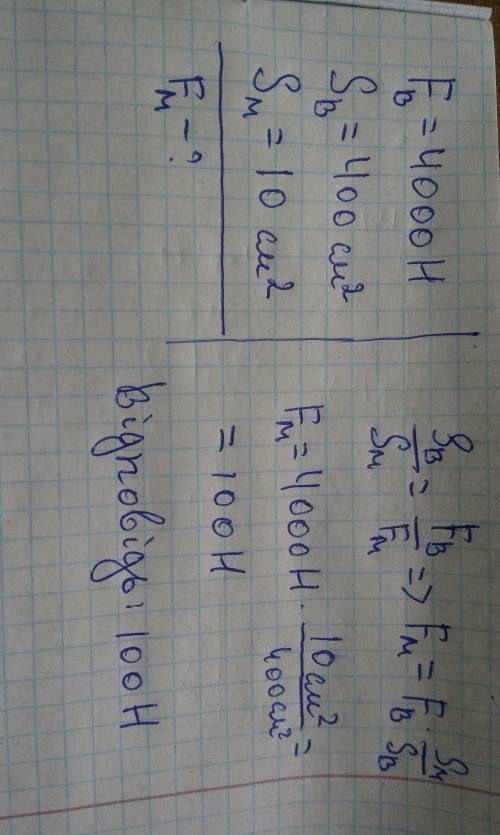 Fв = 4000Н
Sв = 400 см²
Sм = 10 см²
Fм - ?
Sв/Sм = Fв/Fм => Fм = Fв · Sм/Sв
Fм = 4000Н · 10см²/400см² =
= 100Н
Відповідь: 100Н